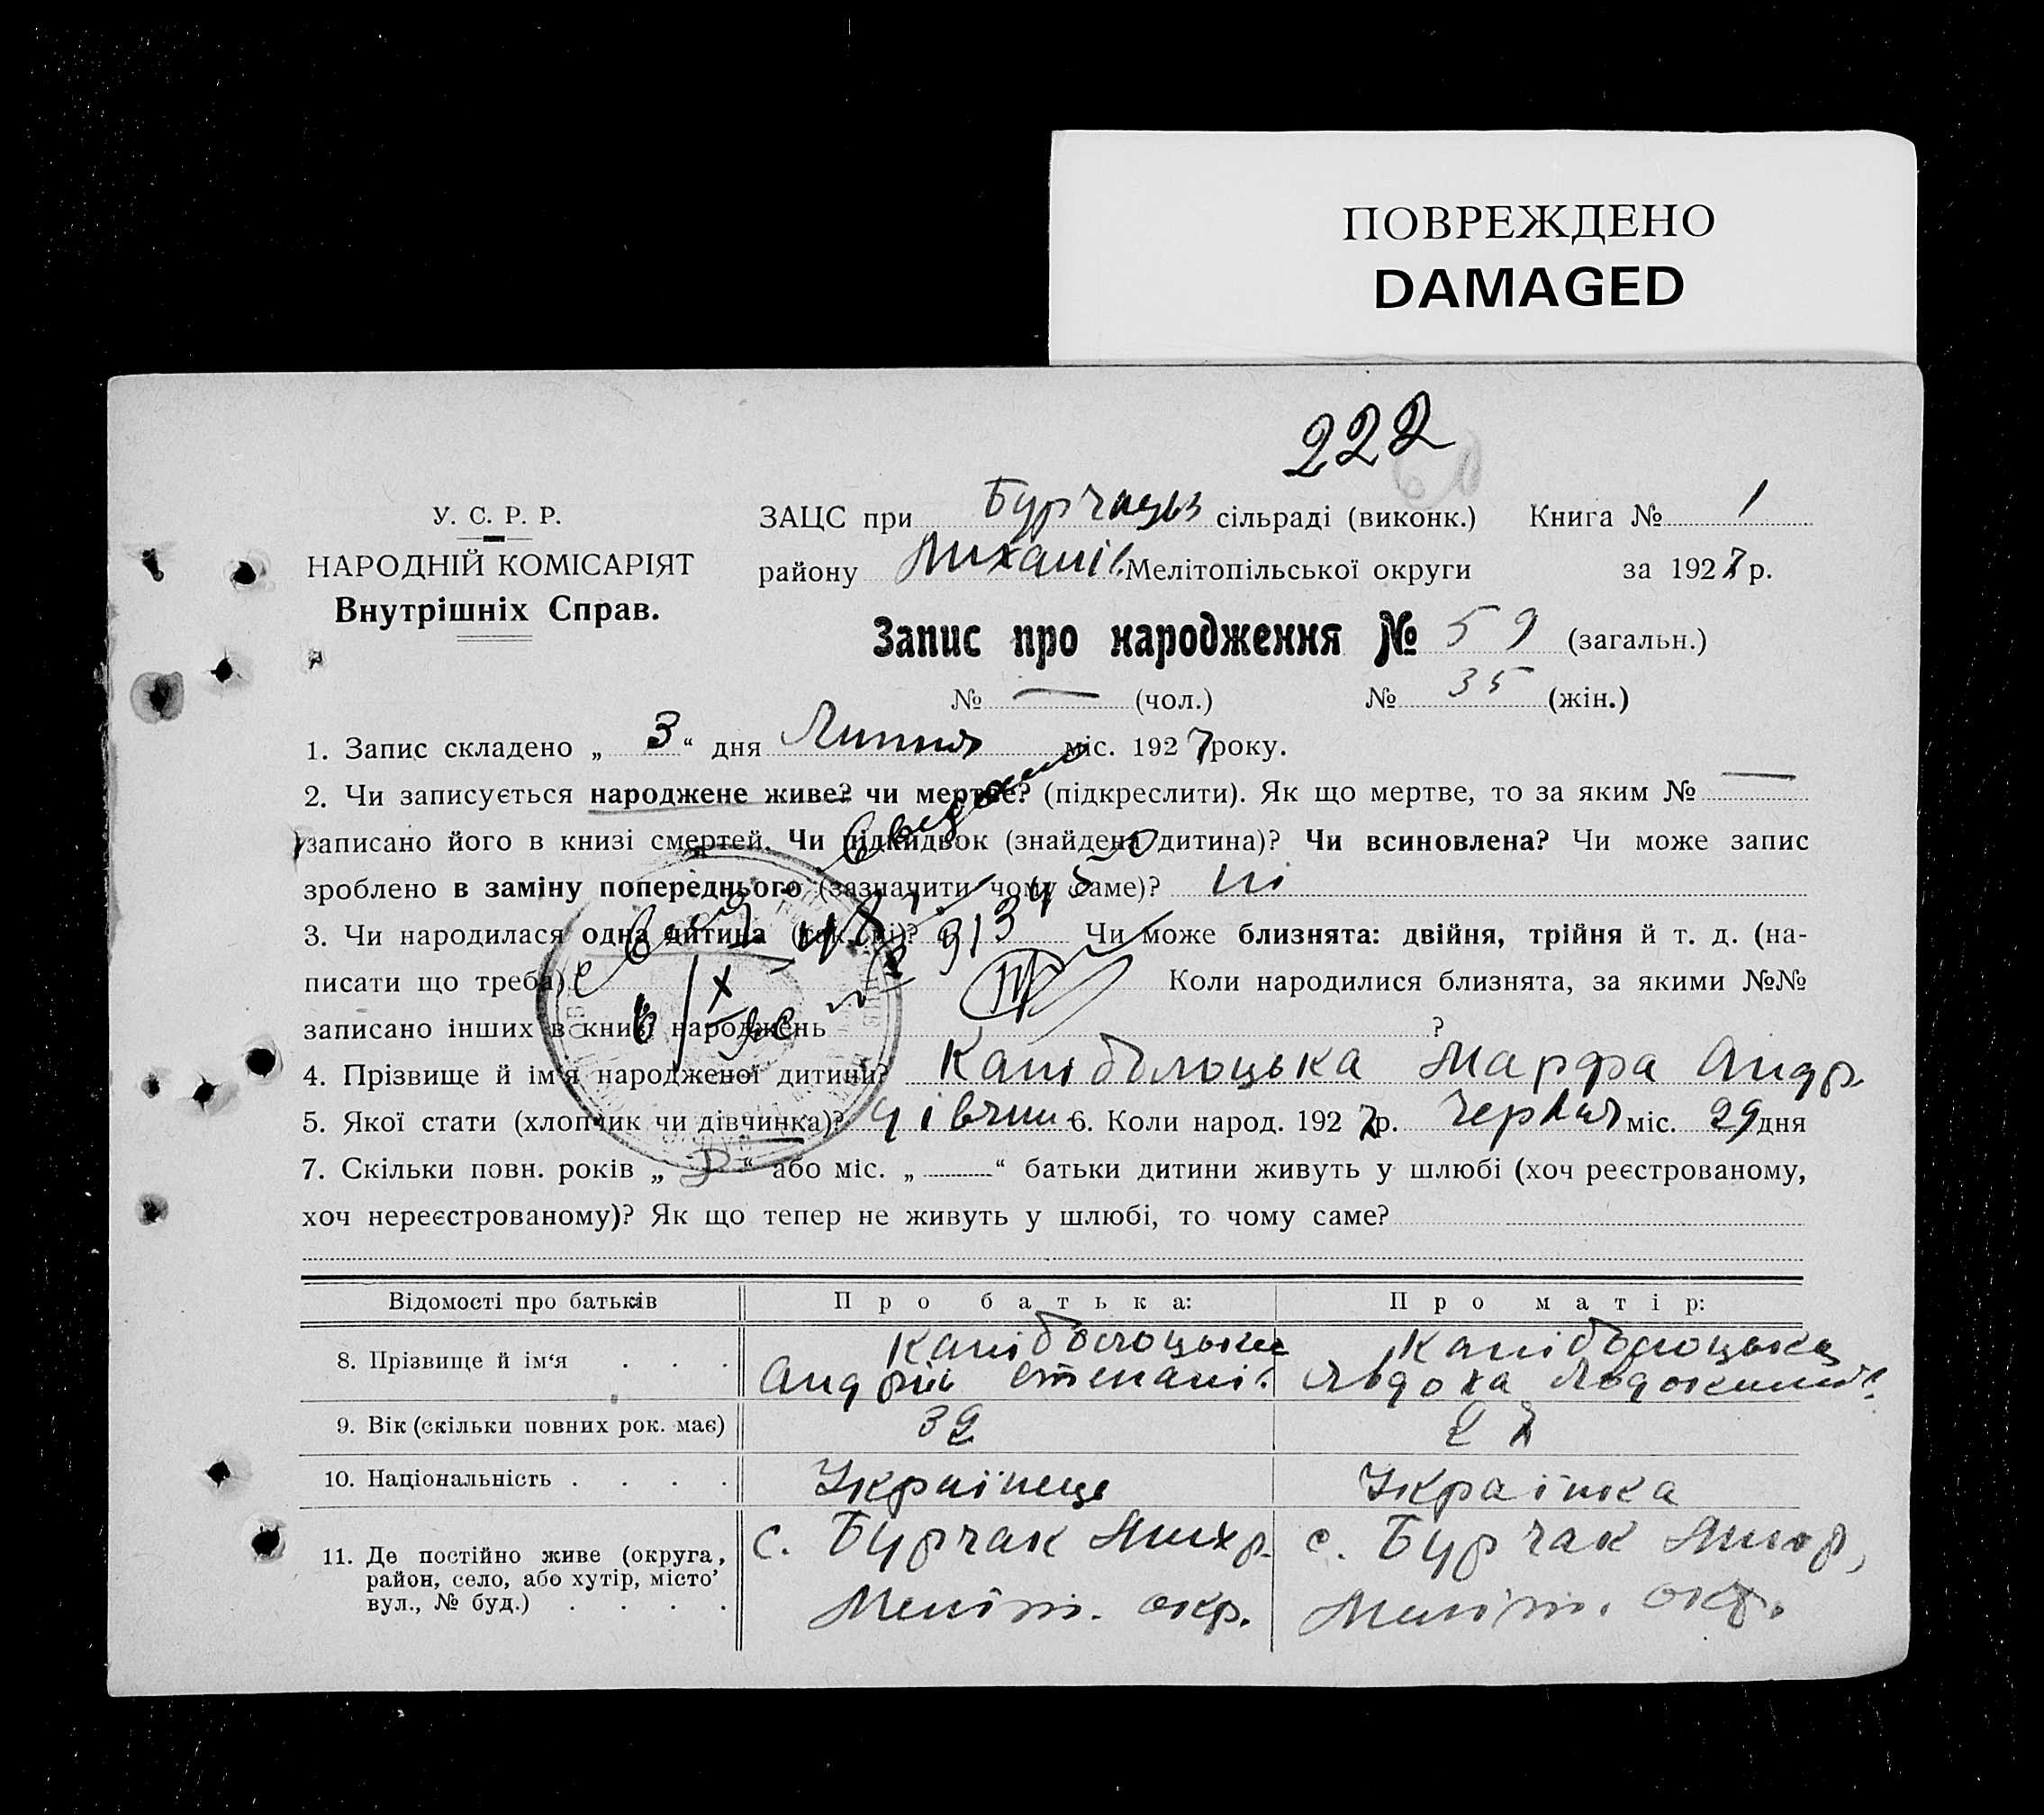 ПОВРЕЖДЕНО
DAMAGED
222
60
У. С. Р. Р.
НАРОДНІЙ КОМІСАРІЯТ
Внутрішніх Справ.
ЗАЦС при сільраді (виконк.) Книга № 1
району Михайлів. Мелітопільської округи за 1927 р.
Запис про народження № 59 (загальн.)
№ — (чол.) № 35 (жін.)
1. Запис складено „ 3 “ дня Липня міс. 1927 року.
2. Чи записується народжене живе? чи мертве? (підкреслити). Як що мертве, то за яким № —
записано його в книзі смертей. Чи підкидьок (знайдена дитина)? Чи всиновлена? Чи може запис
зроблено в заміну попереднього (зазначити чому саме)? ні
3. Чи народилася одна дитина (так, ні)? Чи може близнята: двійня, трійня й т. д. (на-
писати що треба) Коли народилися близнята, за якими №№
записано інших в книзі народжень ?
4. Прізвище й ім'я народженої дитини? Каніболоцька Марфа Андр.
5. Якої стати (хлопчик чи дівчинка)? дівчин 6. Коли народ. 1927 р. червня міс. 29 дня
7. Скільки повн. років „ “ або міс. „ — “ батьки дитини живуть у шлюбі (хоч реєстрованому,
хоч нереєстрованому)? Як що тепер не живуть у шлюбі, то чому саме?
Відомості про батьків Про батька: Про матір:
8. Прізвище й ім‘я . . . Каніболоцький Каніболоцька
Андрій Степані. Явдоха
9. Вік (скільки повних рок. має) 32 27
10. Національність . . . . Українець Українка
11. Де постійно живе (округа, район, село, або хутір, місто’ вул., № буд.) . . . . с. Бурчак Мих р. с. Бурчак Мих р,
Меліт. окр. Меліт. окр.